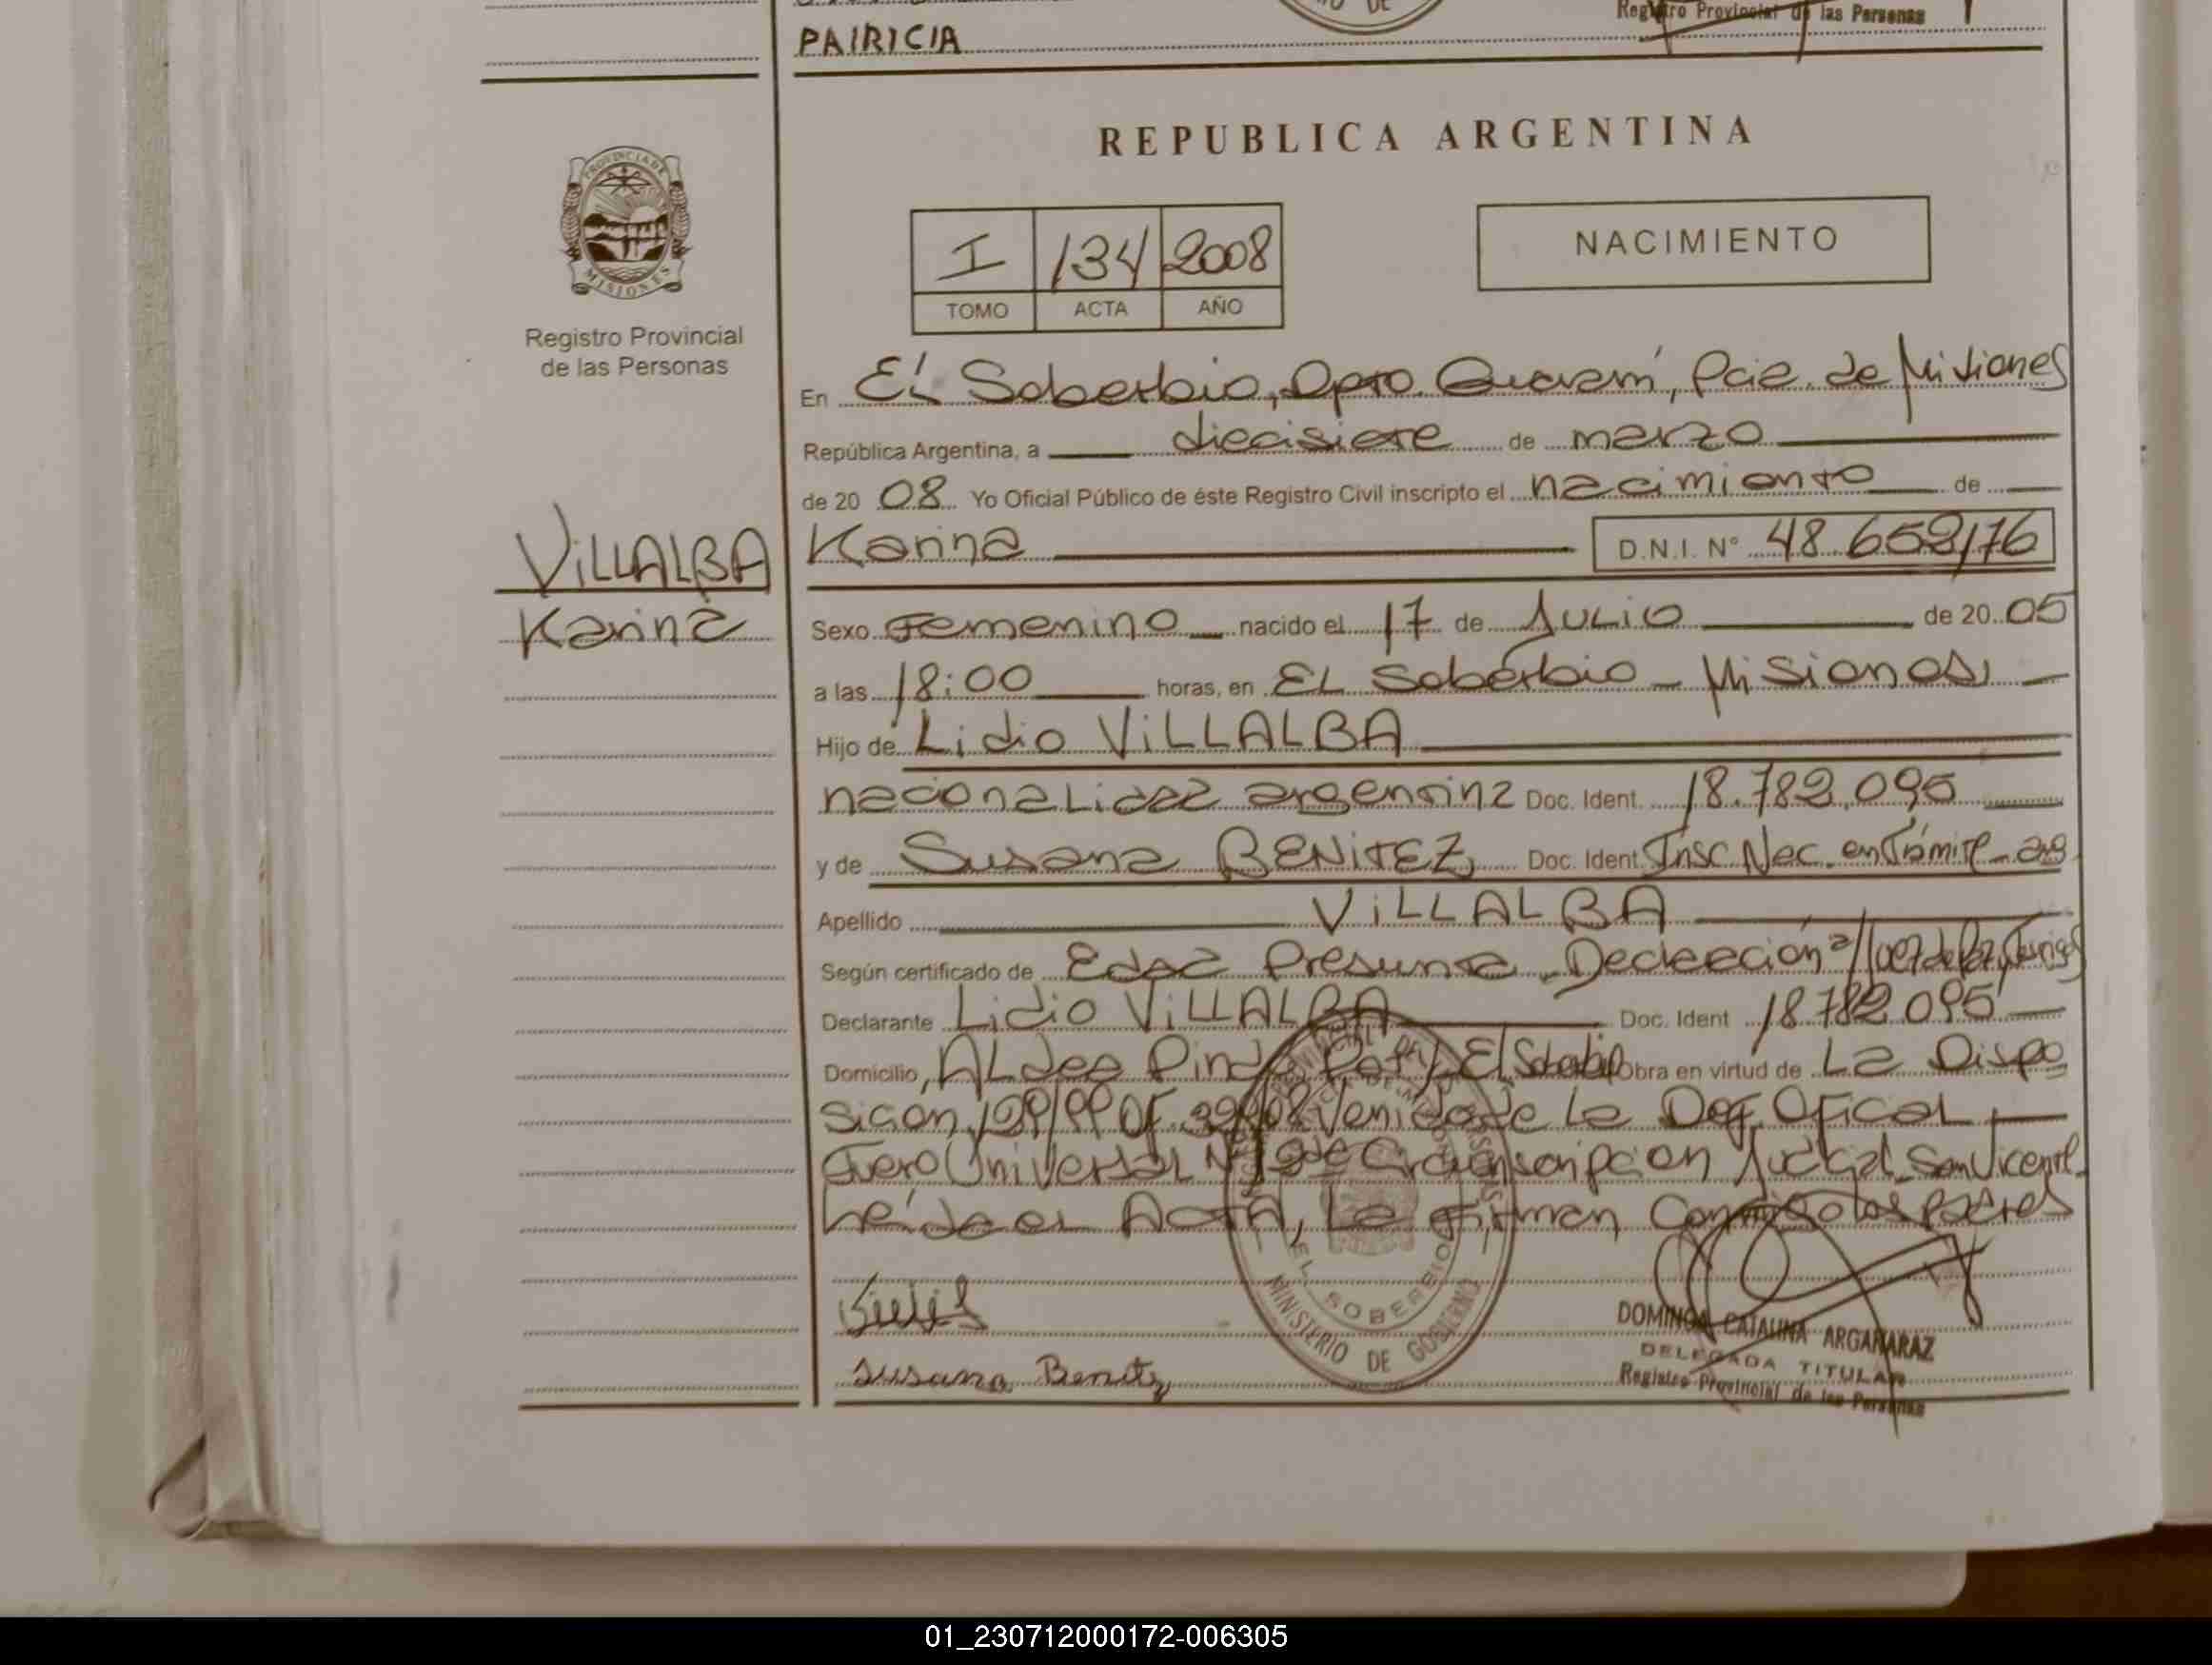 PAIRICIA
Registro Provincial de las Personas
REPUBLICA ARGENTINA
PROVINCIA DE
MISIONES
Registro Provincial
de las Personas
I 134 2008
TOMO ACTA AÑO
NACIMIENTO
En El Soberbio, Dpto. Guaraní, Pcia. de Misiones
República Argentina, a diecisiete de marzo
de 2008 Yo Oficial Público de éste Registro Civil inscripto el nacimiento de
VILLALBA
Karina
Karina D.N.I. N° 48.658176
Sexo Femenino nacido el 17 de JULIO de 2005
a las 18:00 horas, en EL Soberbio - Misiones
Hijo de Lidio VILLALBA
nacionalidad argentina Doc. Ident. 18.782.095
y de Susana BENITEZ Doc. Ident. Insc. Nac. en Trámite - arg
Apellido VILLALBA
Según certificado de Edad Presunta Declaración
Declarante Lidio VILLALBA Doc. Ident 18782095
Domicilio, ALdea Pindó Poty El Soberbio Obra en virtud de La Dispo
sicion 129/99 Of. Venida de La Def. Oficial
Fuero Universal N°1 2da Circunscripcion Judicial San Vicente
Leída el ACTA, La Firman Conmigo los Padres
Susana Benitz
EL SOBERBIO
MINISTERIO DE GOBIERNO
DOMINGA CATALINA ARGAÑARAZ
DELEGADA TITULAR
Registro Provincial de las Personas
01_230712000172-006305